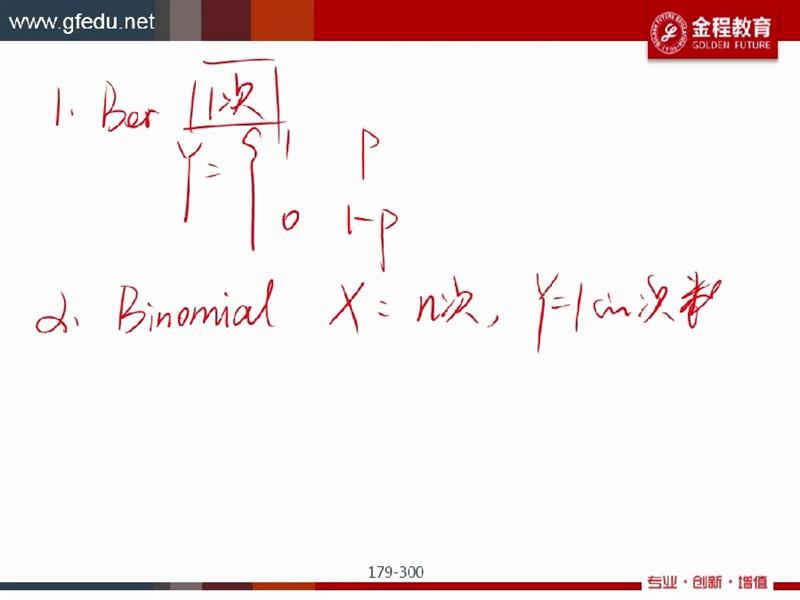 www.gfedu.net
金程教育
GOLDEN FUTURE
1. Ber 1次
Y = { 1 p
0 1-p
2. Binomial X = n次, Y=1 次数
179-300
专业·创新·增值